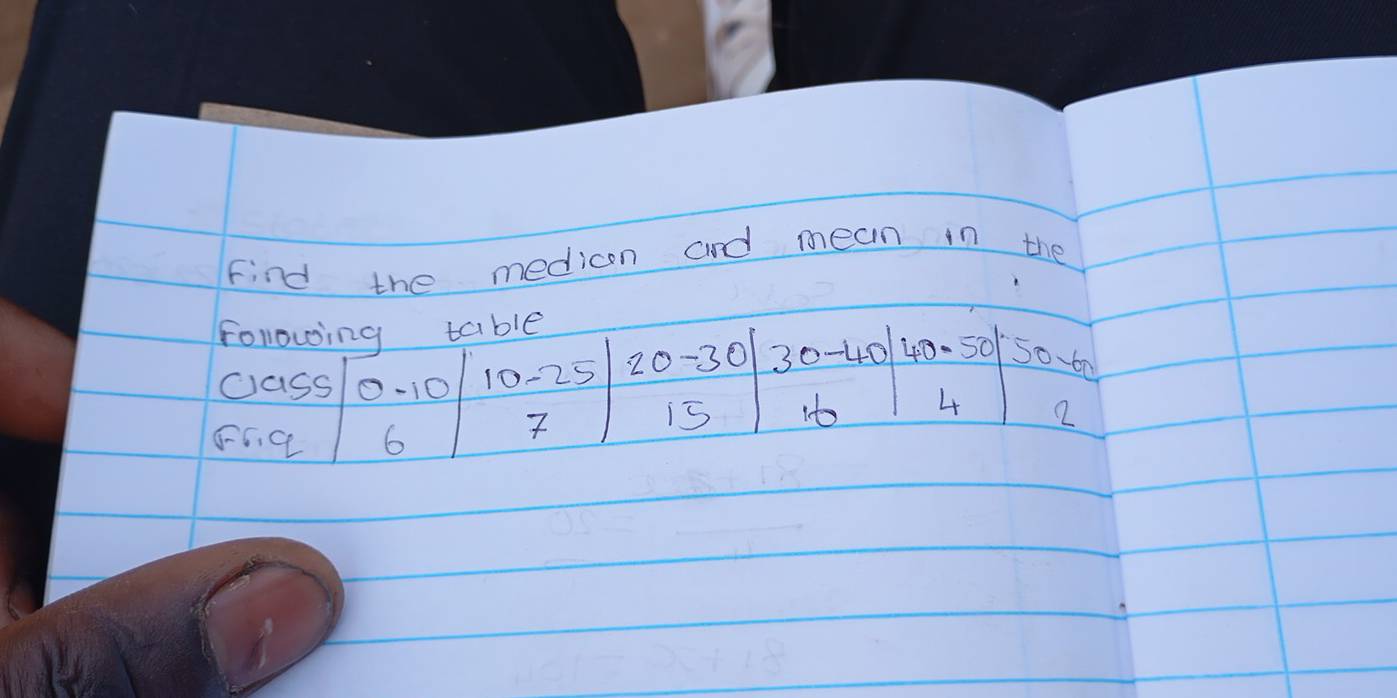 Find the median and mean in the
Following table
Class 0-10 10-25 20-30 30-40 40-50 50-60
Friq 6 7 15 16 4 2